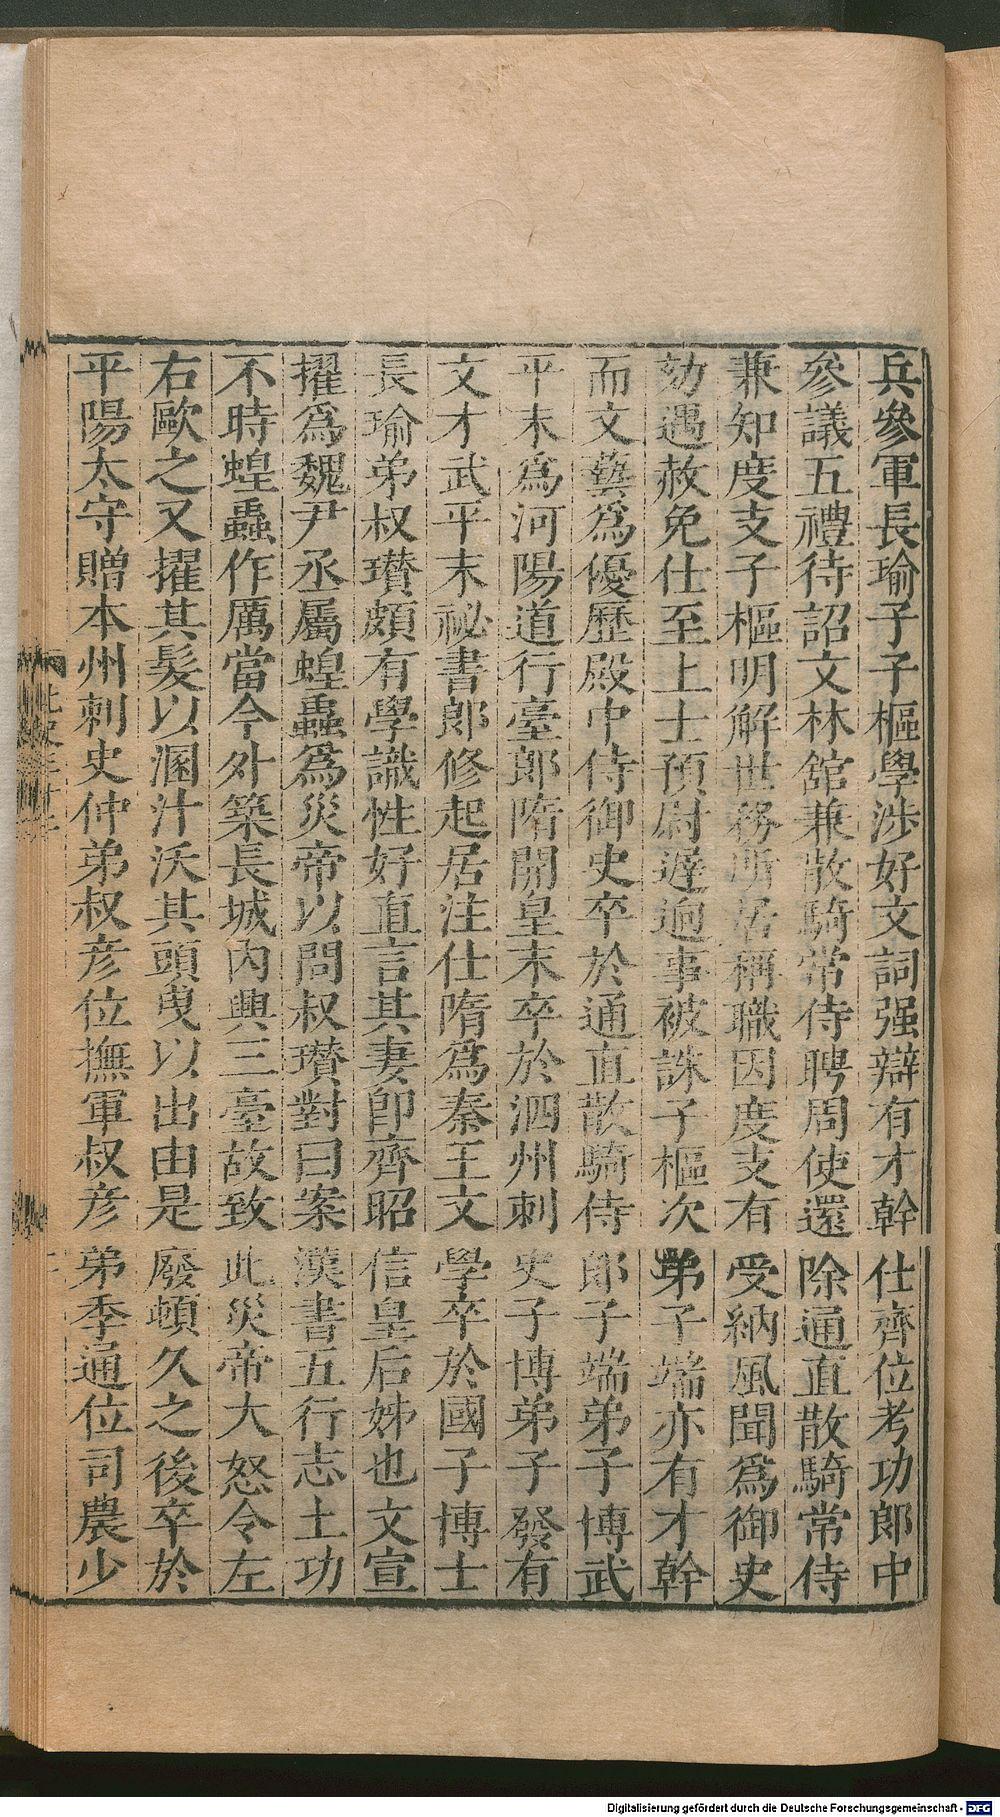 兵參軍長瑜子子樞學涉好文詞强辯有才幹仕齊位考功郎中
參議五禮待詔文林館兼散騎常侍聘周使還除通直散騎常侍
兼知度支子樞明解世務所居稱職因度支有受納風聞爲御史
劾遇赦免仕至上士預尉遲迥事被誅子樞次弟子端亦有才幹
而文藝爲優歷殿中侍御史卒於通直散騎侍郎子端弟子博武
平末爲河陽道行臺郎隋開皇末卒於泗州刺史子博弟子發有
文才武平末祕書郎修起居注仕隋爲秦王文學卒於國子博士
長瑜弟叔瓚頗有學識性好直言其妻卽齊昭信皇后姊也文宣
擢爲魏尹丞屬蝗蟲爲災帝以問叔瓚對曰案漢書五行志土功
不時蝗蟲作厲當今外築長城內興三臺故致此災帝大怒令左
右毆之又擢其髮以溷汁沃其頭曳以出由是廢頓久之後卒於
平陽太守贈本州刺史仲弟叔彦位撫軍叔彦弟季通位司農少
Digitalisierung gefördert durch die Deutsche Forschungsgemeinschaft - DFG